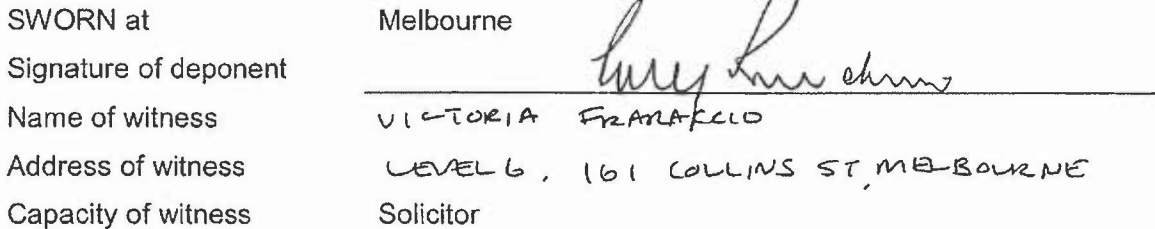 SWORN at Melbourne
Signature of deponent
Name of witness VICTORIA
Address of witness LEVEL 6, 161 COLLINS ST, MELBOURNE
Capacity of witness Solicitor